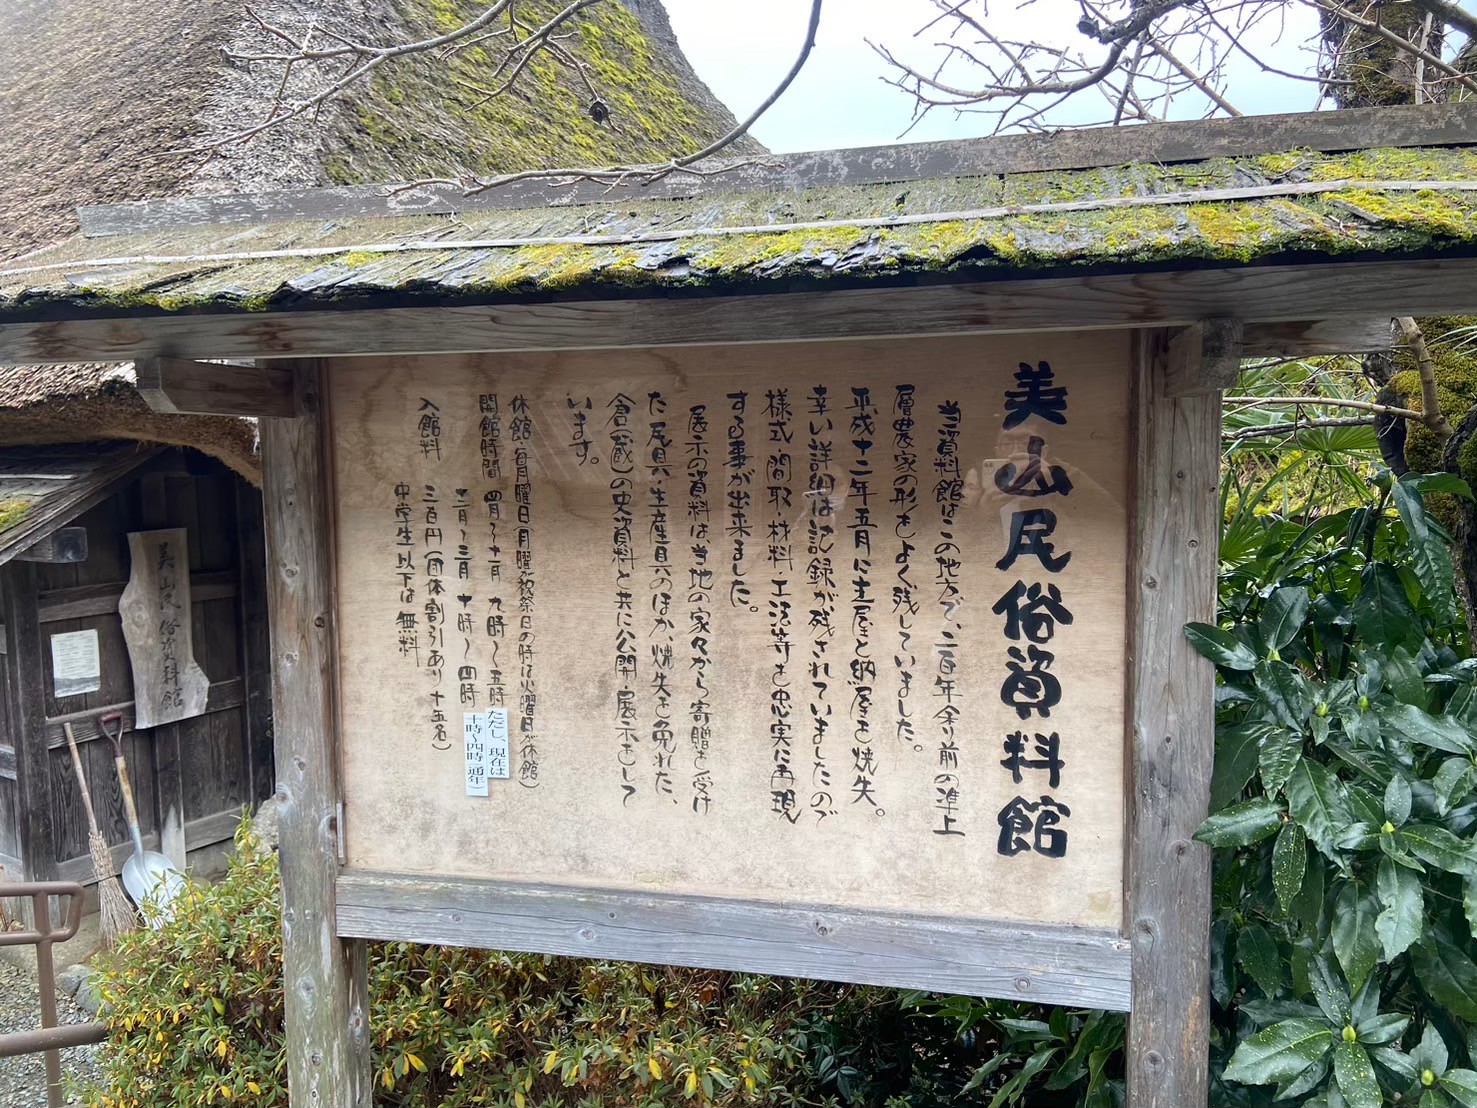 美山民俗資料館
当資料館はこの地方で、二百年余り前の準上
層農家の形をよく残していました。
平成十二年五月に主屋と納屋を焼失。
幸い詳細は記録が残されていましたので
様式・間取・材料・工法等を忠実に再現
する事が出来ました。
展示の資料は当地の家々から寄贈を受け
た民具・生産具のほか、焼失を免れた、
倉(蔵)の史資料と共に公開・展示をして
います。
休館 毎月曜日(月曜が祝祭日の時は火曜日が休館)
開館時間 四月〜十一月 九時〜五時
ただし、現在は
十二月〜三月 十時〜四時
十時〜四時(通年)
入館料 三百円(団体割引あり 十五名)
中学生以下は無料
美山民俗資料館